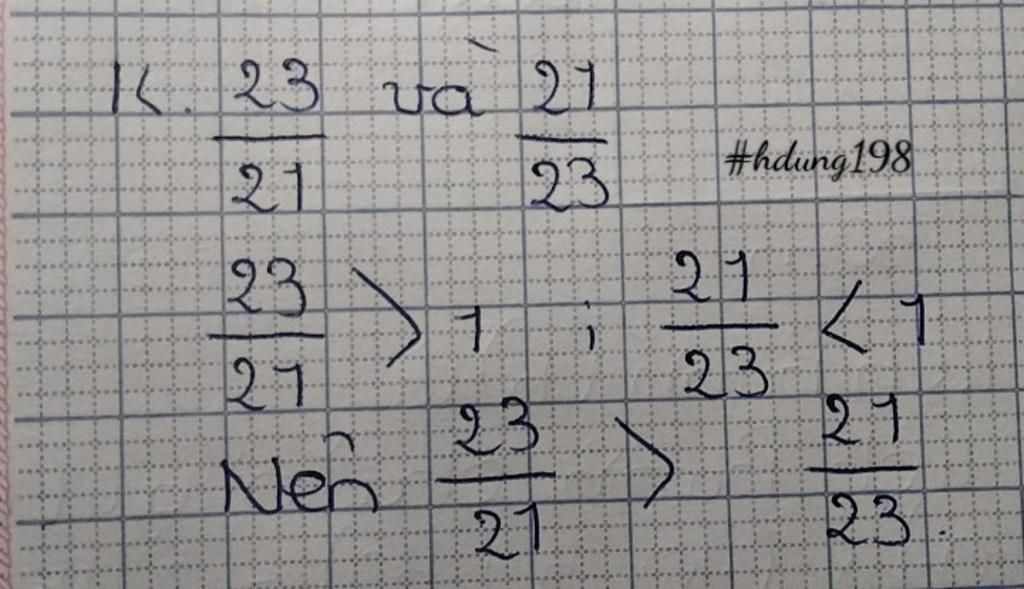 K. 23/21 và 21/23
#hdung198
23/21 > 1 ; 21/23 < 1
Nên 23/21 > 21/23.